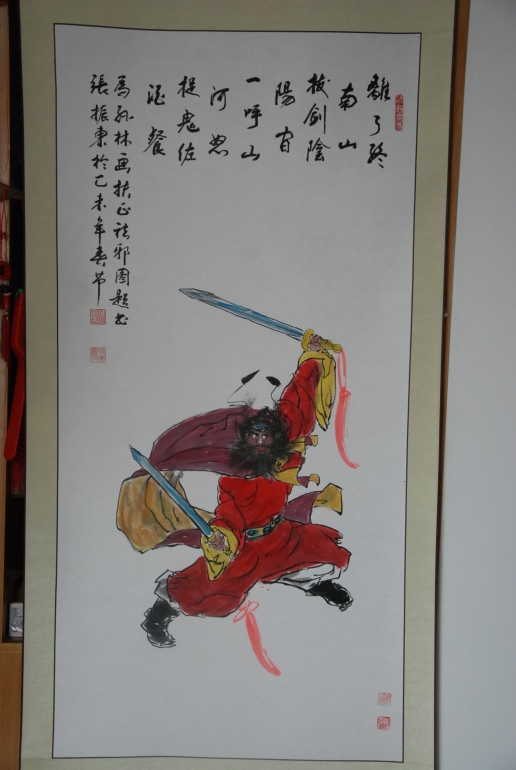 離了終
南山
拔劍陰
陽
一呼山
河
捉鬼佐
酒餐
為孙林画扶正祛邪圖題
張振東於乙未年春節